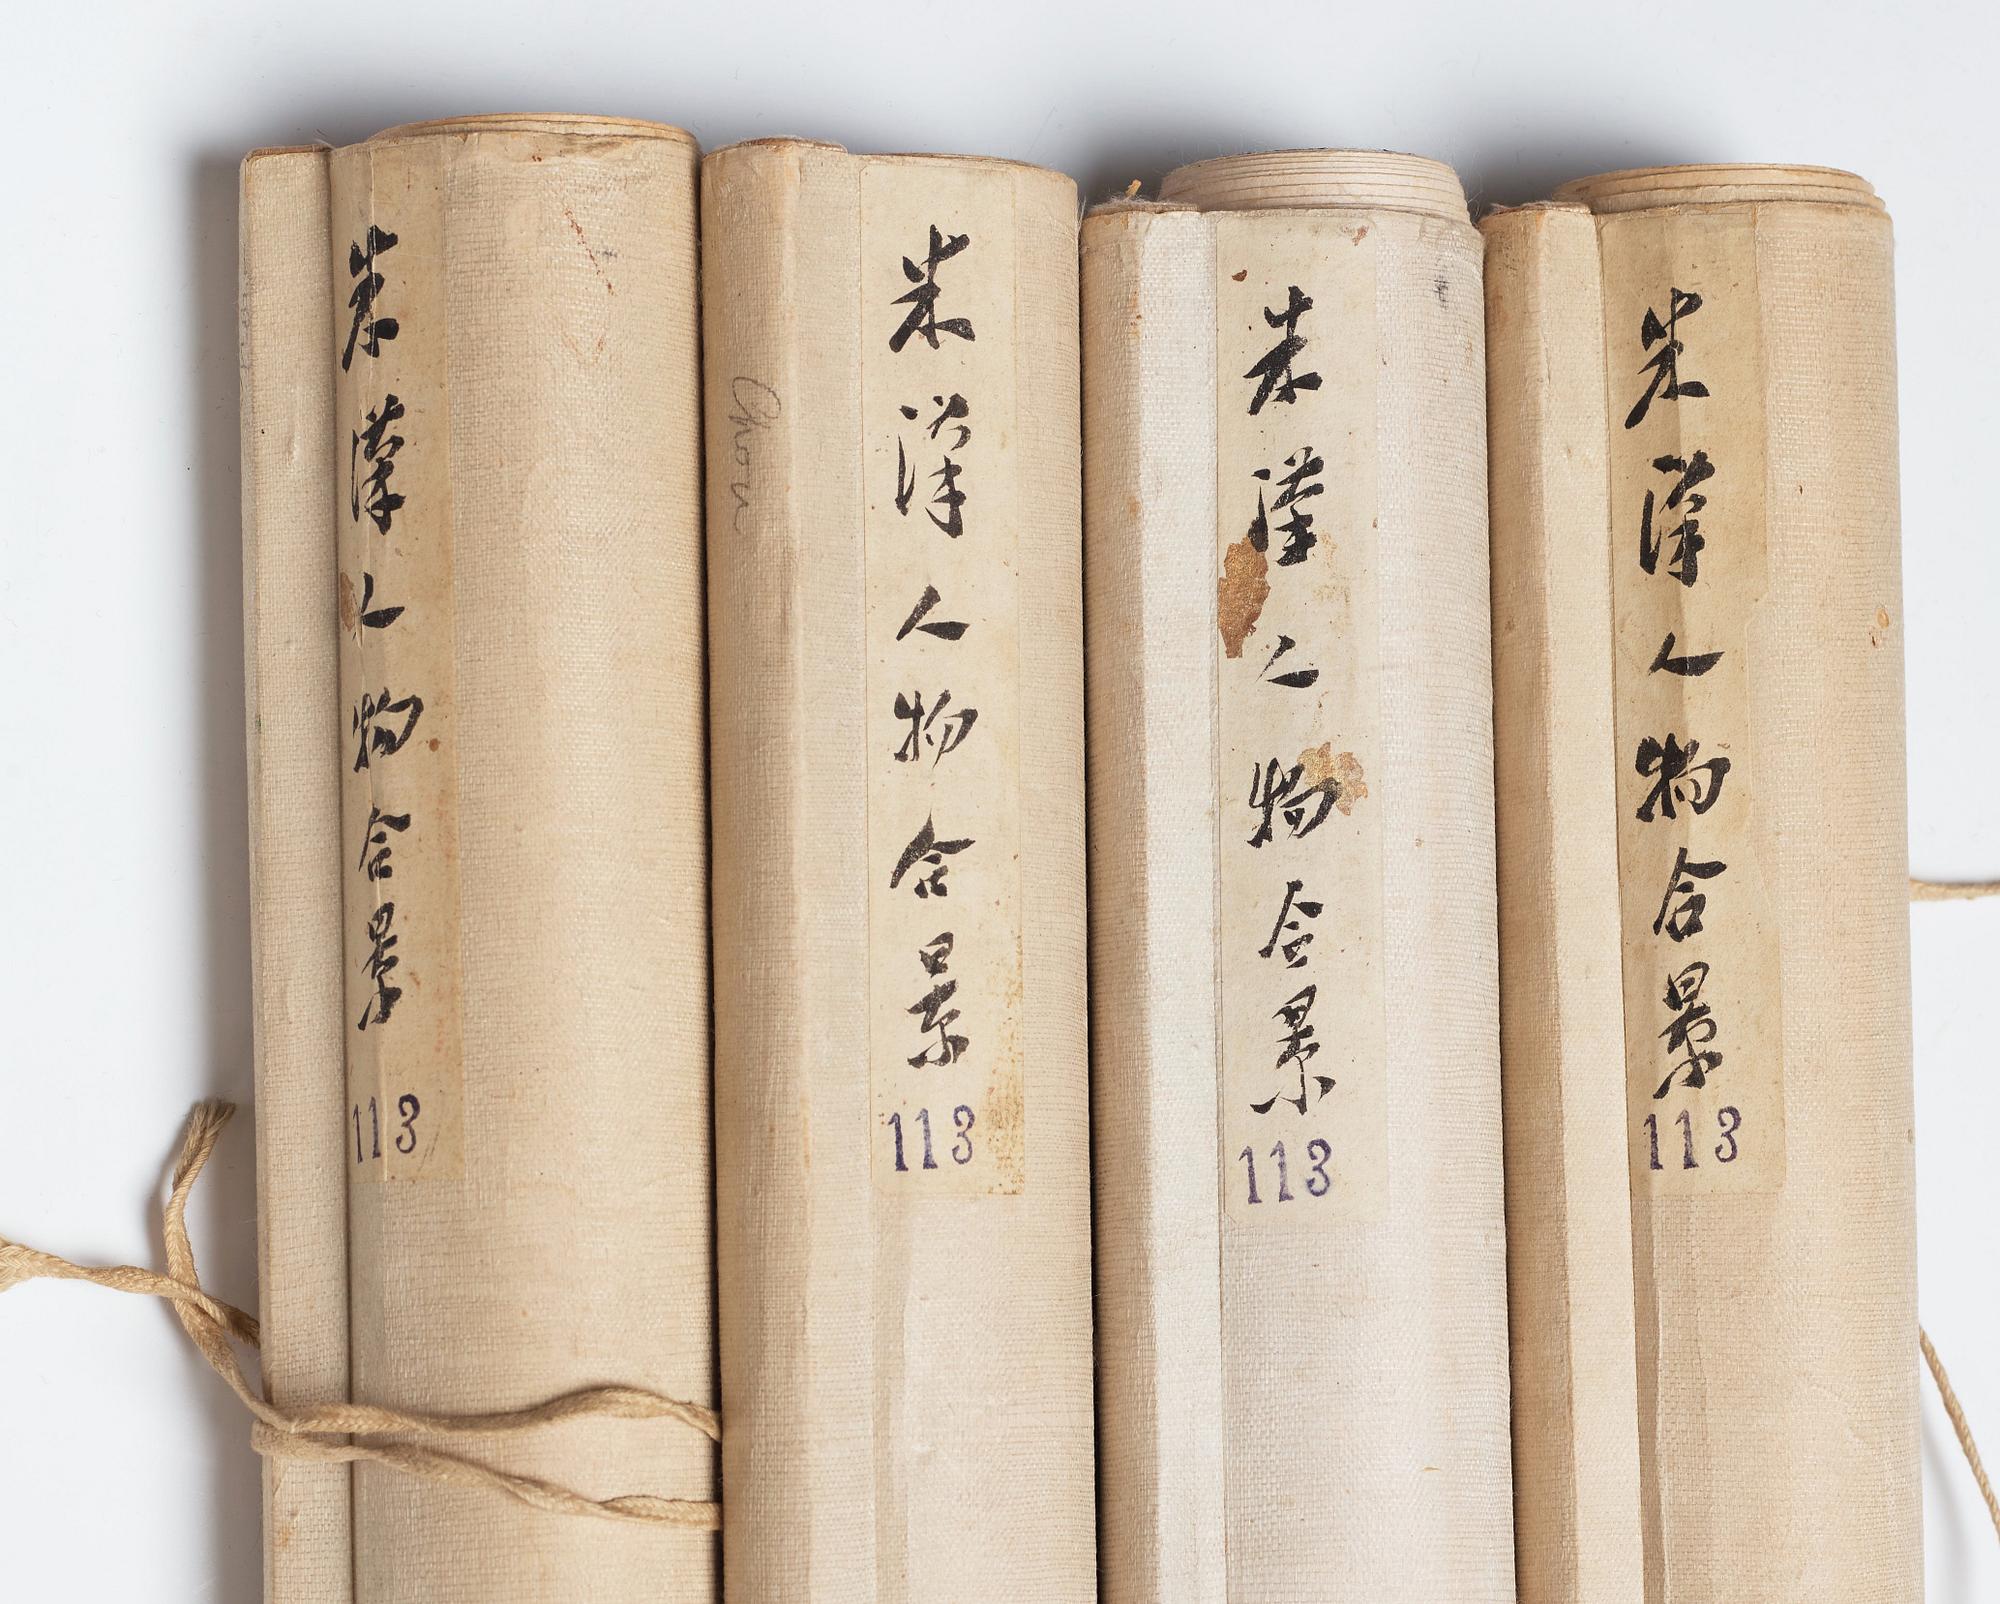 朱漢人物合景
113
Chou
朱漢人物合景
113
朱漢人物合景
113
朱漢人物合景
113